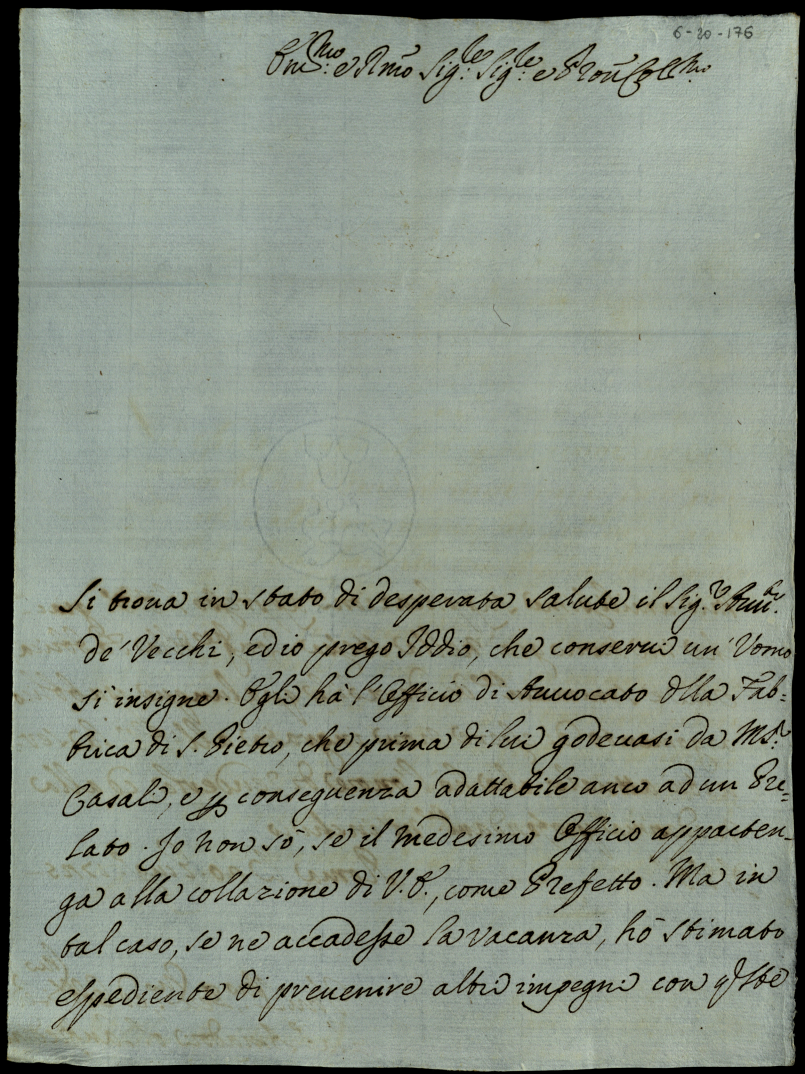 6-20-176
Em.mo e Rmo Sig.re Sig.re e Pron Coll.mo
Si trova in stato di desperata salute il Sig.r Avv.to
de' Vecchi, ed io prego Iddio, che conservi un' Uomo
sì insigne. Egli hà l'Officio di Avvocato dlla Fab=
brica di S. Pietro, che prima di lui godevasi da Ms.r
Casali, e p conseguenza adattabile anco ad un Pre=
lato. Io non sò, se il medesimo Officio apparten-
ga alla collazione di V. E., come Prefetto. Ma in
tal caso, se ne accadesse la vacanza, hò stimato
espediente di prevenire altri impegni con qste